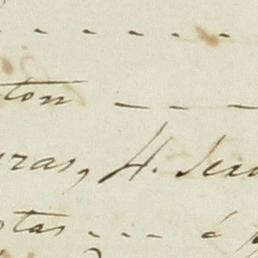 - - - - - -
ton - - -
uras, H. Jea
tas - - - á